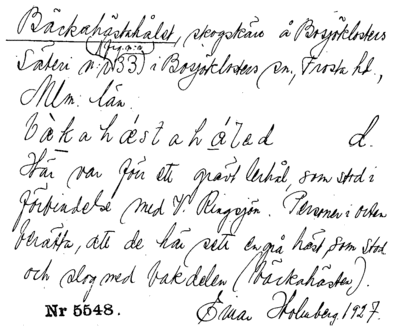 Bäckahästahålet, skogskärr å Bosjöklosters
Säteri n:o 33 i Bosjöklosters sn., Frosta hd.,
Mlm. län.
d.
Här var förr ett grävt lerhål, som stod i
förbindelse med V. Ringsjön. Personer i orten
berätta, att de här sett en grå häst, som stod
och slog med bakdelen (bäckahästen).
Nr 5548. Einar Holmberg 1927.